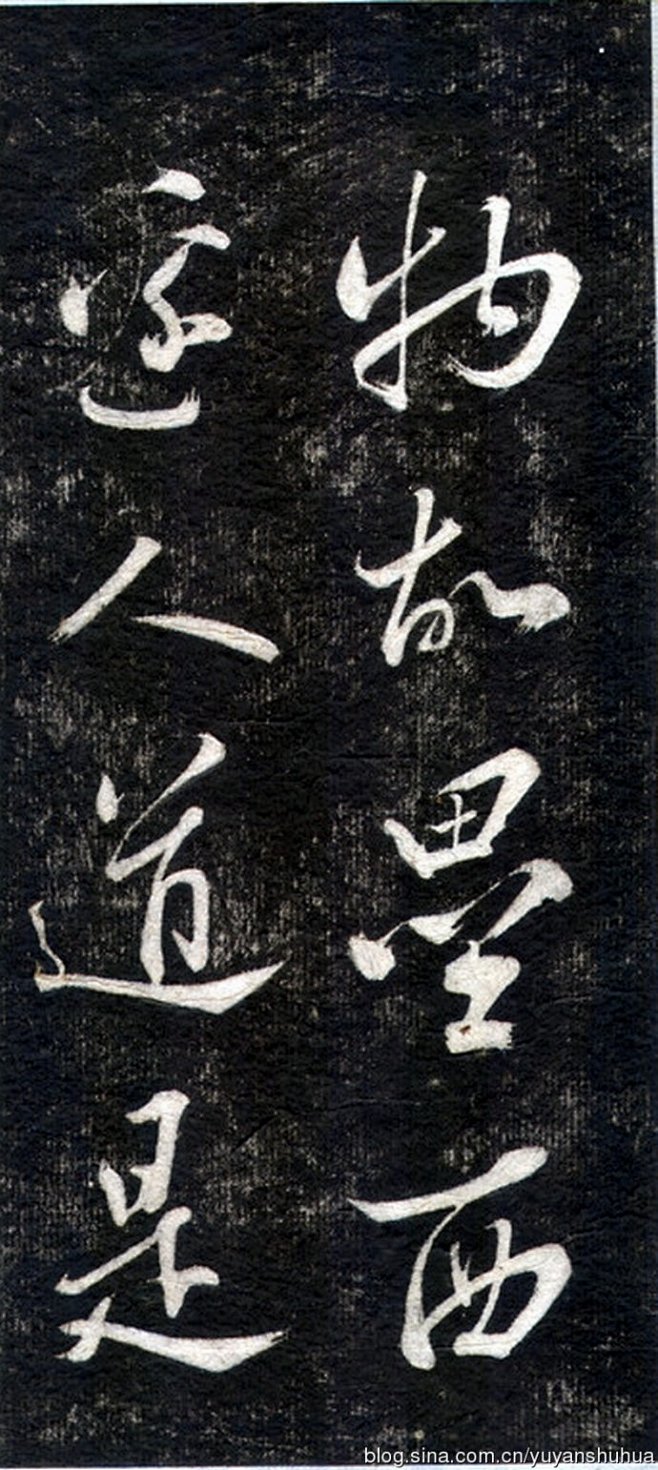 物故壘西
邊人道是
blog.sina.com.cn/yuyanshuhua